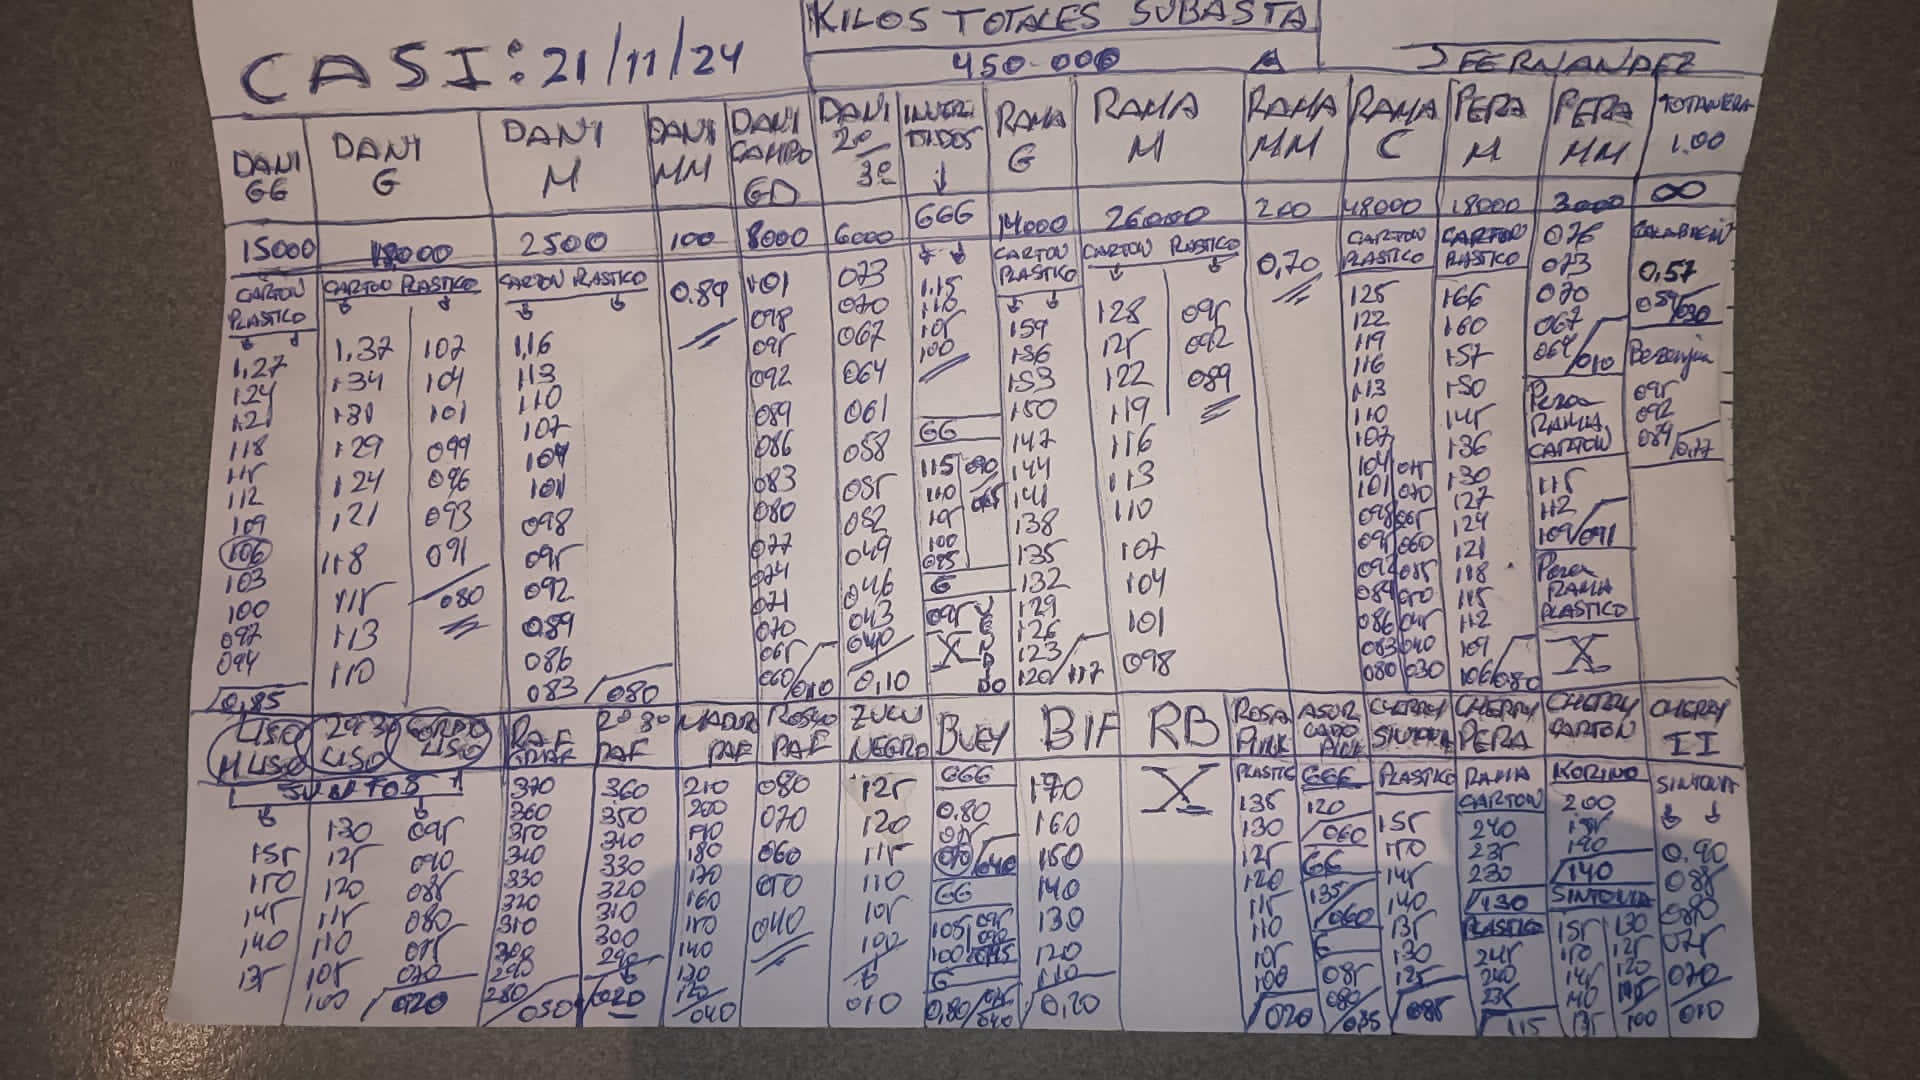 KILOS TOTALES SUBASTA
CASI: 21/11/24
450.000
JFERNANDEZ
DANI GG
15000
CARTON
PLASTICO
1,27
124
121
118
115
112
109
106
103
100
097
094
0,85
DANI G
18000
CARTON PLASTICO
1,37 107
134 104
131 101
129 099
124 096
121 093
118 091
115 080
113
110
DANI M
2500
CARTON PLASTICO
1,16
113
110
107
104
101
098
095
092
089
086
083/080
DANI MM
100
0.89
DANI CAMPO GD
8000
101
098
095
092
089
086
083
080
077
074
071
070
065
060/010
DANI 2º 3º
6000
073
070
067
064
061
058
055
052
049
046
043
040
0,10
INVERTIDOS
GGG
1,15
110
105
100
GG
115
110
105
100
095
G
095
X
RAMA G
14000
CARTON
PLASTICO
159
156
153
150
147
144
141
138
135
132
129
126
123
120/117
RAMA M
26000
CARTON PLASTICO
128 095
125 092
122 089
119
116
113
110
107
104
101
098
RAMA MM
200
0,70
RAMA C
48000
CARTON
PLASTICO
125
122
119
116
113
110
107
104 075
101 070
098 065
095 060
092 055
089 050
086 045
083 040
080 030
PERA M
18000
CARTON
PLASTICO
166
160
157
150
145
136
130
127
124
121
118
115
112
109
106/080
PERA MM
3000
076
073
070
067
064/010
Pera
RAMA
CARTON
115
112
109/091
Pera
RAMA
PLASTICO
X
TOTANERA
1.00
∞
CALABACIN
0,57
054/030
Berenjena
095
092
089/0,17
LISO
M LISO
SUELTOS
155
150
145
140
135
LISO
130
125
120
115
110
105
100
GORDO
LISO
095
090
085
080
075
070
020
RAF
370
360
350
340
330
320
310
300
290
280/050
2º
RAF
360
350
340
330
320
310
300
290
020
MADURO
RAF
210
200
190
180
170
160
150
140
130
120
040
ROSADO
RAF
080
070
060
050
040
ZULU
NEGRO
125
120
115
110
105
100
010
BUEY
GGG
0.80
075
070/040
GG
105 095
100
G
0,80
BIF
170
160
150
140
130
120
110
0,20
RB
X
ROSA
PINK
PLASTIC
135
130
125
120
115
110
105
100
020
ASURCADO
PINK
GGG
120
060
GG
135
060
G
085
080
035
CHERRY
SINTONIA
PLASTICO
155
150
145
140
135
130
125
085
CHERRY
PERA
RAMA
CARTON
240
235
230
130
PLASTICO
245
240
235
115
CHERRY
CARTON
KORINO
200
195
190
140
SINTONIA
155 130
150 125
145 120
140 115
135 100
CHERRY
II
SINTONIA
0.90
085
080
075
070
010